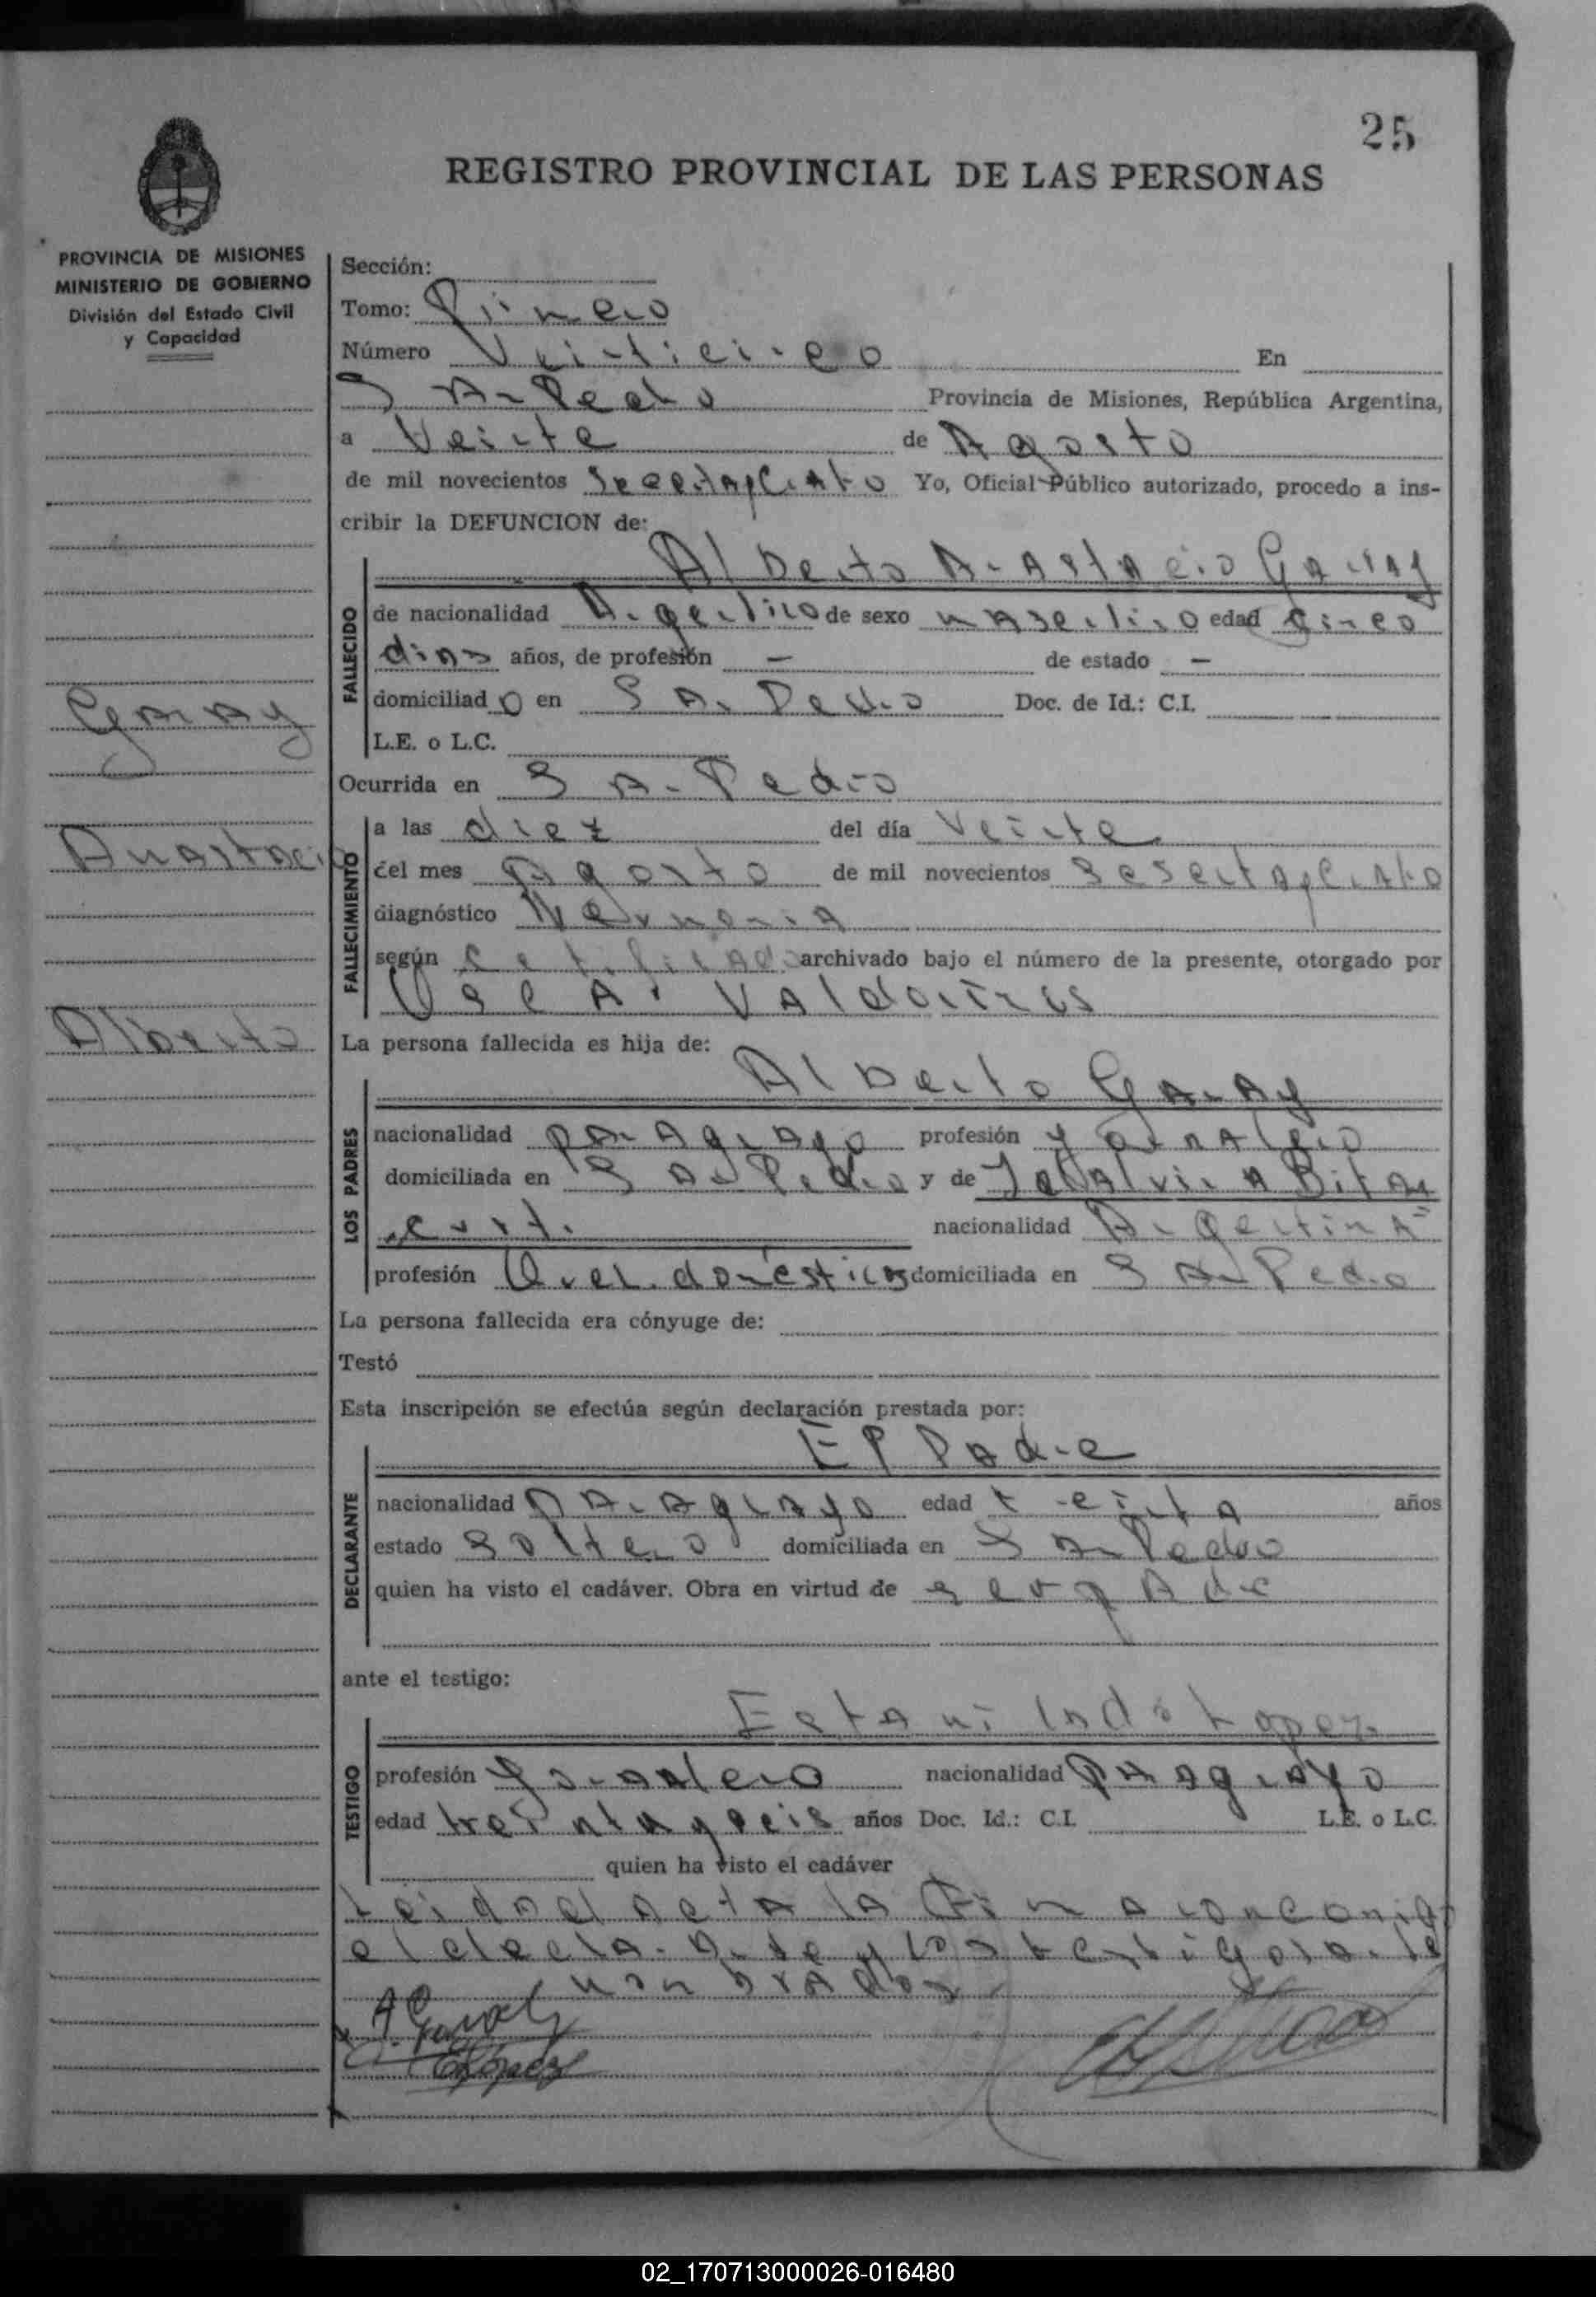 25
REGISTRO PROVINCIAL DE LAS PERSONAS
PROVINCIA DE MISIONES
MINISTERIO DE GOBIERNO
División del Estado Civil
y Capacidad
Garay
Anastaci
Alberto
Sección:
Tomo: Primero
Número Veinticinco En
San Pedro Provincia de Misiones, República Argentina,
a Veinte de Agosto
de mil novecientos Yo, Oficial Público autorizado, procedo a ins-
cribir la DEFUNCION de:
Alberto Anastacio Garay
FALLECIDO
de nacionalidad Argentino de sexo masculino edad cinco
dias años, de profesión — de estado —
domiciliad o en San Pedro Doc. de Id.: C.I.
L.E. o L.C.
Ocurrida en San Pedro
FALLECIMIENTO
a las diez del día Veinte
del mes Agosto de mil novecientos sesentaycuatro
diagnóstico Neumonia
según certificado archivado bajo el número de la presente, otorgado por
La persona fallecida es hija de:
Alberto Garay
LOS PADRES
nacionalidad paraguayo profesión jornalero
domiciliada en San Pedro y de
nacionalidad Argentina
profesión Quel. domésticos domiciliada en San Pedro
La persona fallecida era cónyuge de:
Testó
Esta inscripción se efectúa según declaración prestada por:
El Padre
DECLARANTE
nacionalidad paraguayo edad treinta años
estado Soltero domiciliada en San Pedro
quien ha visto el cadáver. Obra en virtud de ser padre
ante el testigo:
Estanislado Lopez
TESTIGO
profesión Jornalero nacionalidad paraguayo
edad treintayseis años Doc. Id.: C.I. L.E. o L.C.
quien ha visto el cadáver
Leida el acta la firma conmigo
el declarante y los testigos ante
nombrados
A Garay
E Lopez
02_170713000026-016480